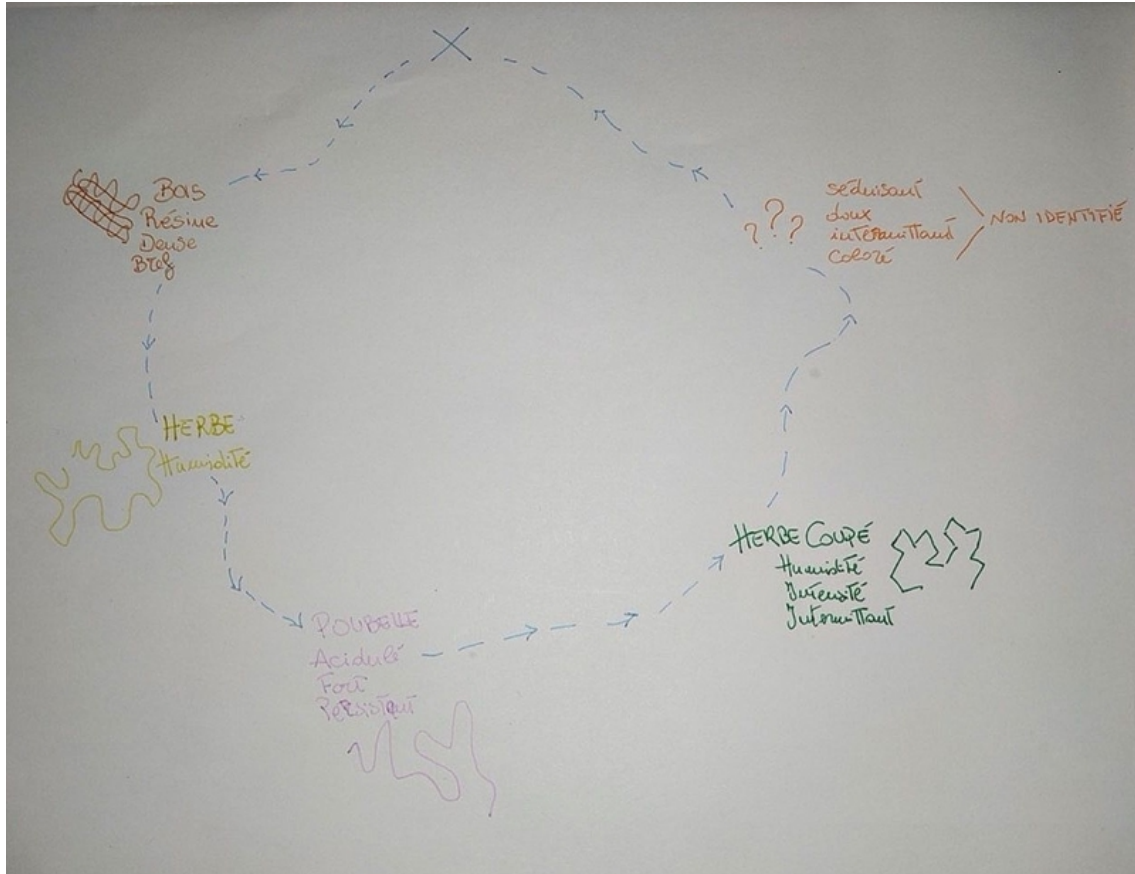 Bois
Résine
Dense
Bref
HERBE
Humidité
POUBELLE
Acidulé
Fort
Persistant
HERBE COUPÉ
Humidité
Intensité
Intermittant
? ? ?
séduisant
doux
intermittant
coloré
NON IDENTIFIÉ